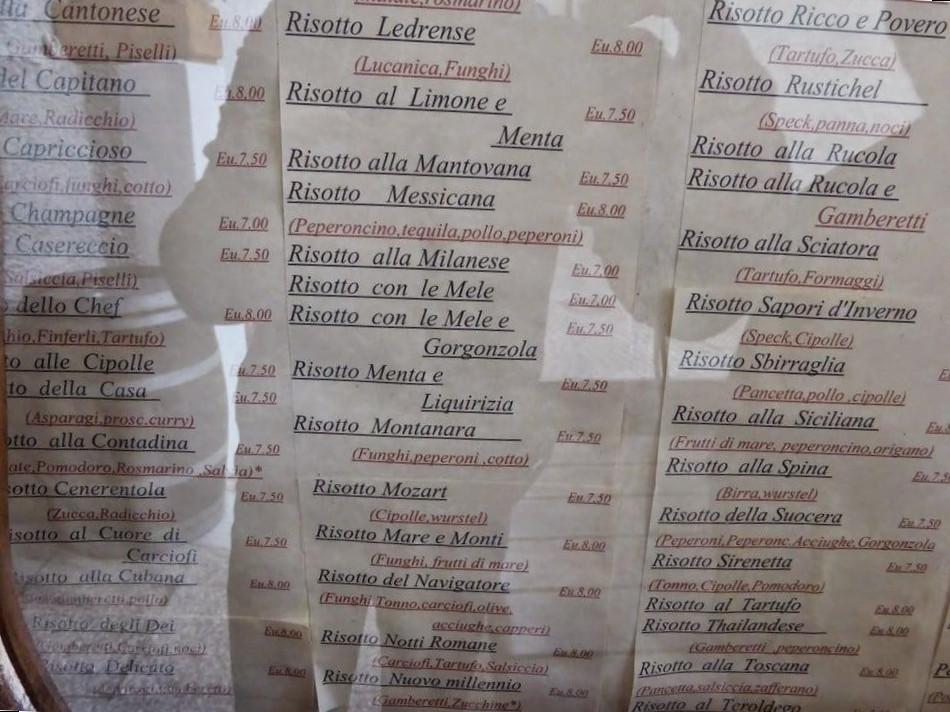 Cantonese Eu.8,00
Gamberetti, Piselli)
del Capitano Eu.8,00
Mare,Radicchio)
Capriccioso Eu.7,50
carciofi,funghi,cotto)
Champagne Eu.7.00
Casereccio Eu.7.50
Salsiccia,Piselli)
dello Chef Eu.8,00
Finferli,Tartufo)
alle Cipolle Eu.7.50
della Casa Eu.7.50
(Asparagi,prosc.curry)
alla Contadina Eu.7.50
Pomodoro,Rosmarino ,Salsicia)*
Cenerentola Eu.7.50
(Zucca,Radicchio)
al Cuore di Eu.7.50
Carciofi
Risotto alla Cubana Eu.8,00
gamberetti,pollo)
Risotto degli Dei Eu.8,00
(Gamberetti,Carciofi,noci)
Risotto Delicato Eu.8.00
rosmarino)
Risotto Ledrense Eu.8,00
(Lucanica,Funghi)
Risotto al Limone e Eu.7.50
Menta
Risotto alla Mantovana Eu.7,50
Risotto Messicana Eu.8.00
(Peperoncino,tequila,pollo,peperoni)
Risotto alla Milanese Eu.7,00
Risotto con le Mele Eu.7,00
Risotto con le Mele e Eu.7,50
Gorgonzola
Risotto Menta e Eu.7,50
Liquirizia
Risotto Montanara Eu.7,50
(Funghi,peperoni ,cotto)
Risotto Mozart Eu.7,50
(Cipolle,wurstel)
Risotto Mare e Monti Eu.8,00
(Funghi, frutti di mare)
Risotto del Navigatore Eu.8,00
(Funghi,Tonno,carciofi,olive,
acciughe,capperi)
Risotto Notti Romane Eu.8.00
(Carciofi,Tartufo,Salsiccia)
Risotto Nuovo millennio Eu.8,00
(Gamberetti,Zucchine*)
Risotto Ricco e Povero
(Tartufo,Zucca)
Risotto Rustichel
(Speck,panna,noci)
Risotto alla Rucola
Risotto alla Rucola e
Gamberetti
Risotto alla Sciatora
(Tartufo,Formaggi)
Risotto Sapori d'Inverno
(Speck,Cipolle)
Risotto Sbirraglia
(Pancetta,pollo ,cipolle)
Risotto alla Siciliana
(Frutti di mare, peperoncino,origano)
Risotto alla Spina Eu.7,5
(Birra,wurstel)
Risotto della Suocera Eu.7,50
(Peperoni,Peperonc.Acciughe,Gorgonzola
Risotto Sirenetta Eu.7.50
(Tonno,Cipolle,Pomodoro)
Risotto al Tartufo Eu.8,00
Risotto Thailandese Eu.8,00
(Gamberetti ,peperoncino)
Risotto alla Toscana Eu.8,00
(Pancetta,salsiccia,zafferano)
Risotto al Teroldego